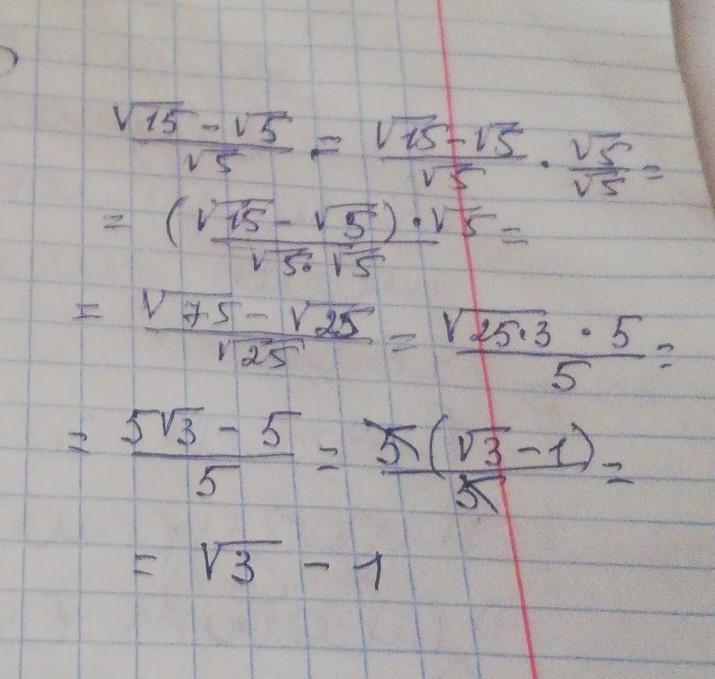 (√15 - √5)/√5 = (√15 - √5)/√5 · √5/√5 =
= ((√15 - √5) · √5)/(√5 · √5) =
= (√75 - √25)/√25 = (√(25·3) · 5)/5 =
= (5√3 - 5)/5 = (5(√3 - 1))/5 =
= √3 - 1